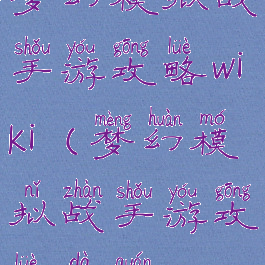 梦幻模拟战
shǒu yóu gōng lüè
手游攻略wi
mèng huàn mó
ki（梦幻模
nǐ zhàn shǒu yóu gōng
拟战手游攻
lüè dà quán